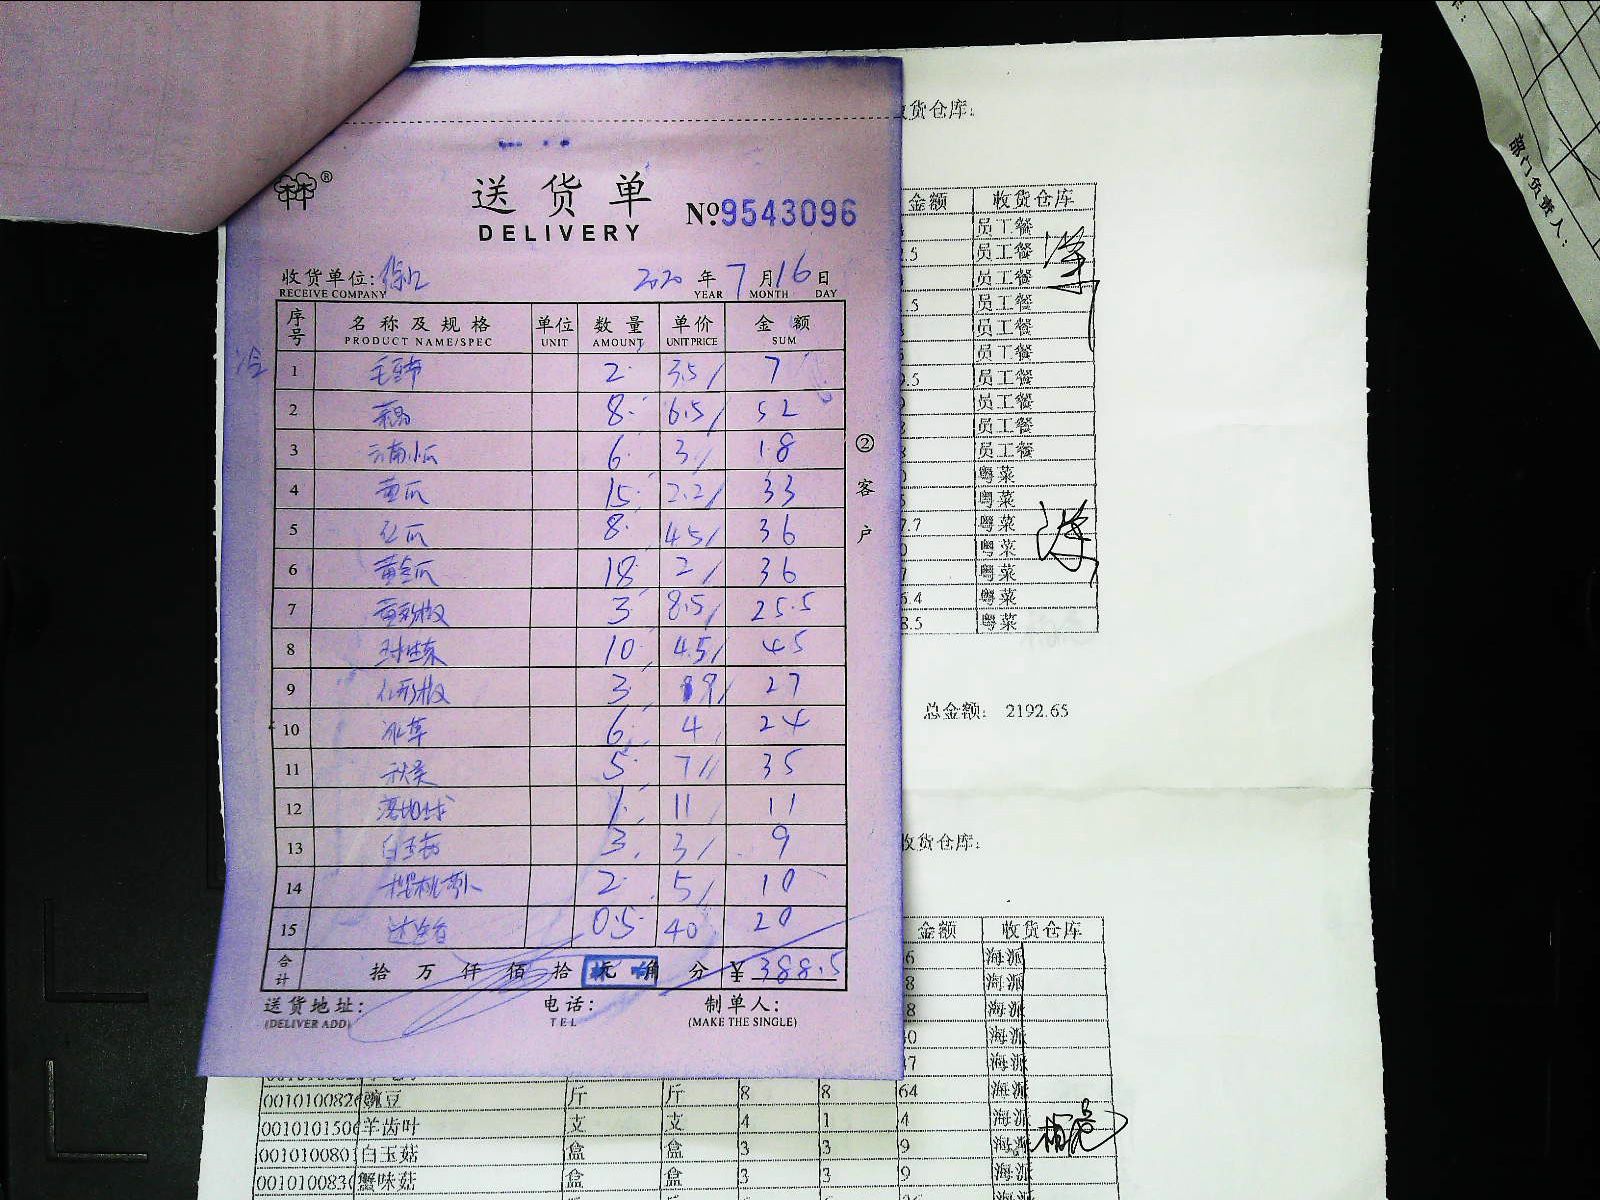 送货单
DELIVERY
№9543096
收货单位:徐汇 2020年7月16日
RECEIVE COMPANY YEAR MONTH DAY
序号 名称及规格 单位 数量 单价 金额
PRODUCT NAME/SPEC UNIT AMOUNT UNIT PRICE SUM
冷
1 毛豆节 2 3.5 7
2 8 6.5 52
3 云南小瓜 6 3 1.8
4 黄瓜 15 2.2 33
5 瓜 8 4.5 36
6 黄金瓜 18 2 36
7 黄彩椒 3 8.5 25.5
8 10 4.5 45
9 红彩椒 3 9 27
10 冰草 6 4 24
11 秋葵 5 7 35
12 1 11 11
13 白玉菇 3 3 9
14 樱桃萝卜 2 5 10
15 迷迭香 0.5 40 20
合计 拾万仟佰拾元角分 ¥388.5
送货地址: 电话: 制单人:
(DELIVER ADD) TEL (MAKE THE SINGLE)
②客户
收货仓库:
金额 收货仓库
员工餐
.5 员工餐
员工餐
.5 员工餐
员工餐
员工餐
.5 员工餐
员工餐
员工餐
员工餐
粤菜
粤菜
7.7 粤菜
粤菜
粤菜
.4 粤菜
8.5 粤菜
总金额: 2192.65
收货仓库:
金额 收货仓库
6 海派
8 海派
8 海派
0 海派
7 海派
001010082 豌豆 斤 斤 8 8 64 海派
001010150 羊齿叶 支 支 4 1 4 海派
001010080 白玉菇 盒 盒 3 3 9 海派
001010083 蟹味菇 盒 盒 3 3 9 海派
部门负责人: